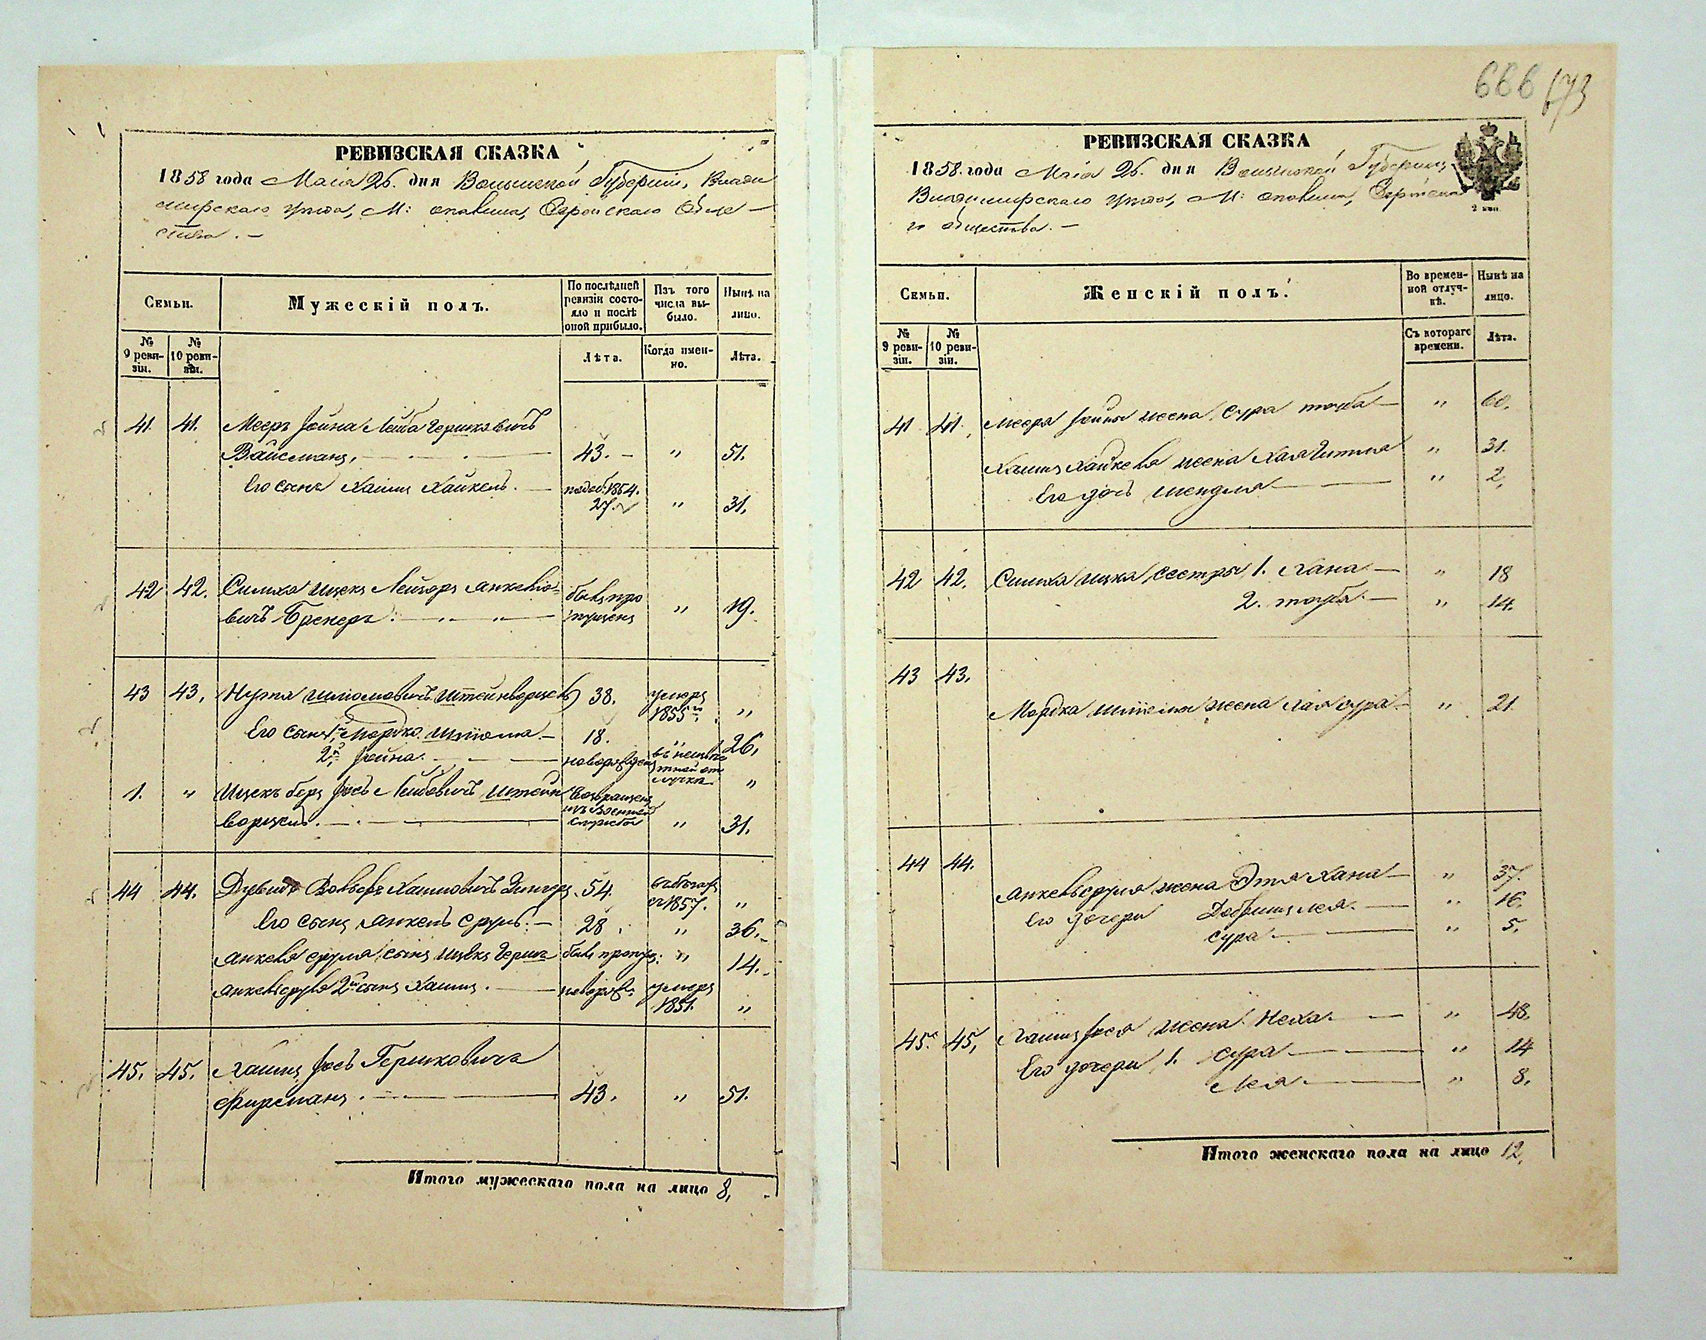 666 673
РЕВИЗСКАЯ СКАЗКА
1858 года Маія 26. дня Волынской Губерніи, Влади
мирскаго уезда, М: Опалина, Еврейскаго Обще
ства.
Семьи.
Мужескій полъ.
По послѣдней ревизіи состояло и послѣ оной прибыло.
Изъ того числа выбыло.
Нынѣ на лицо.
№ 9 ревизіи.
№ 10 ревизіи.
Лѣта.
Когда именно.
Лѣта.
41. 41. Мееръ Іойна Лейба Гершковичъ
Вайсманъ, 43. " 51.
Его сынъ Хаимъ Хайкель. 1854. 27. " 31.
42 42. Симха Ицекъ Лейзоръ Янкеліо-
вичъ Бренеръ. бывъ пропущенъ " 19.
43 43. Нухим Шліомовичъ Штейнворцель 38. умеръ 1855 "
Его сынъ 1й Мордко Шліома 18. " 26.
2й Іойна. новорожденъ въ отлучке "
1. " Ицекъ Беръ Іось Лейбовичъ Штейн
ворцель. возвращенъ изъ Военной службы " 31.
44 44. Дувидъ Вольфъ Хаимовичъ Зингеръ 54. въ бегах съ 1857. "
Его сынъ Янкель Сруль. 28. " 36.
Янкеля Сруля сынъ Ицекъ Гершъ бывъ пропущ: " 14.
Янкель Сруля 2й сынъ Хаимъ. новорож: умеръ 1851. "
45. 45. Хаимъ Іось Гершковичъ
Фирманъ. 43. " 51.
Итого мужескаго пола на лицо 8.
РЕВИЗСКАЯ СКАЗКА
1858 года Маія 26. дня Волынской Губерніи,
Владимирскаго уезда, М: Опалина, Еврейска
го общества.
Семьи.
Женскій полъ.
Во временной отлучкѣ.
Нынѣ на лицо.
№ 9 ревизіи.
№ 10 ревизіи.
Съ котораго времени.
Лѣта.
41 41. Меера Іойны жена Сура Тауба " 60.
Хаима Хайкеля жена Хая Гитля " 31.
Его дочь Шендля " 2.
42 42. Симха Ицка сестры 1. Хана " 18
2. Тауба. " 14.
43 43.
Мордка Шліомы жена Хая Сура " 21
44 44.
Янкель Сруля жена Этя Хана " 37.
Его дочери Добриш Лея. " 16.
Сура " 5.
45. 45. Хаима Іося жена Неха. " 48.
Его дочери 1. Сура " 14
Лея " 8.
Итого женскаго пола на лицо 12.